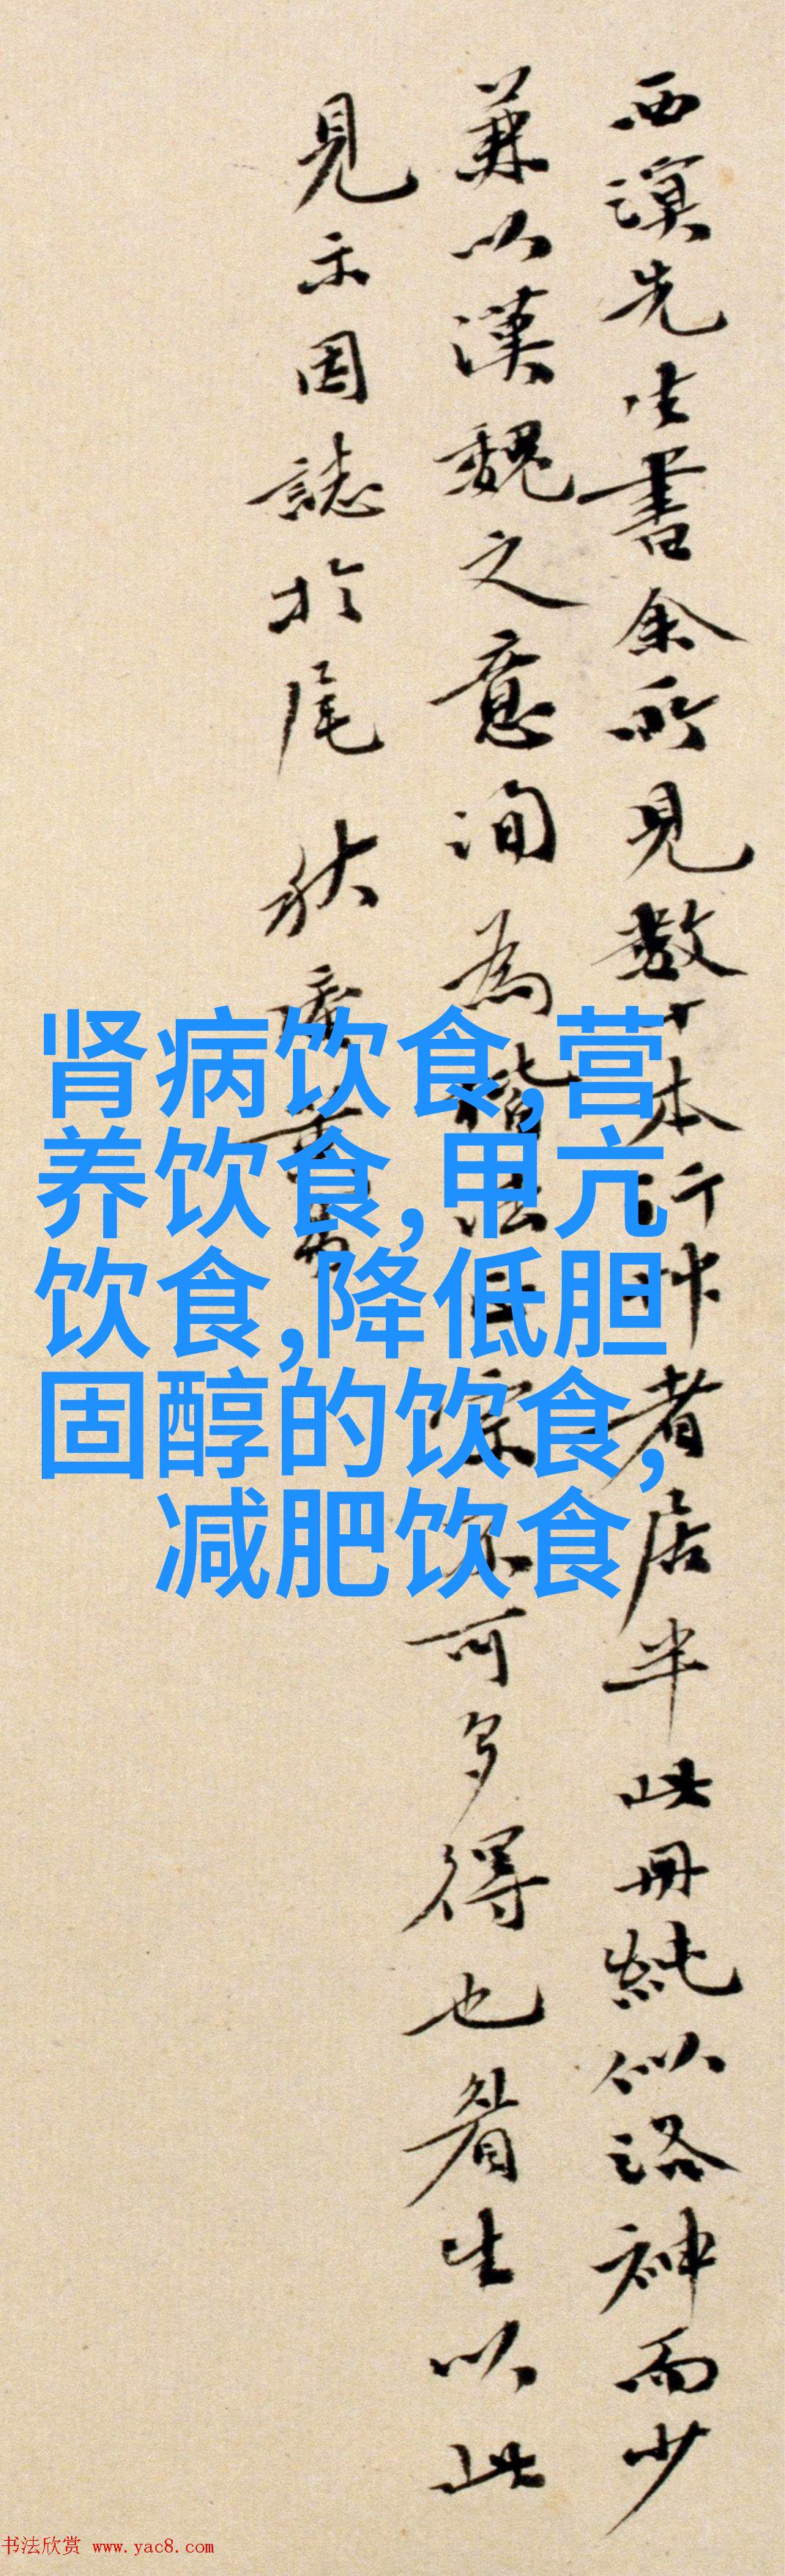 西溟先生書余所見數十本行押者居半此冊純似洛神而少
兼以漢魏之意洵為楷法正宗不可多得也眷生以此
見示因誌於尾
肾病饮食,营
养饮食,甲亢
饮食,降低胆
固醇的饮食,
减肥饮食
书法欣赏 www.yac8.com